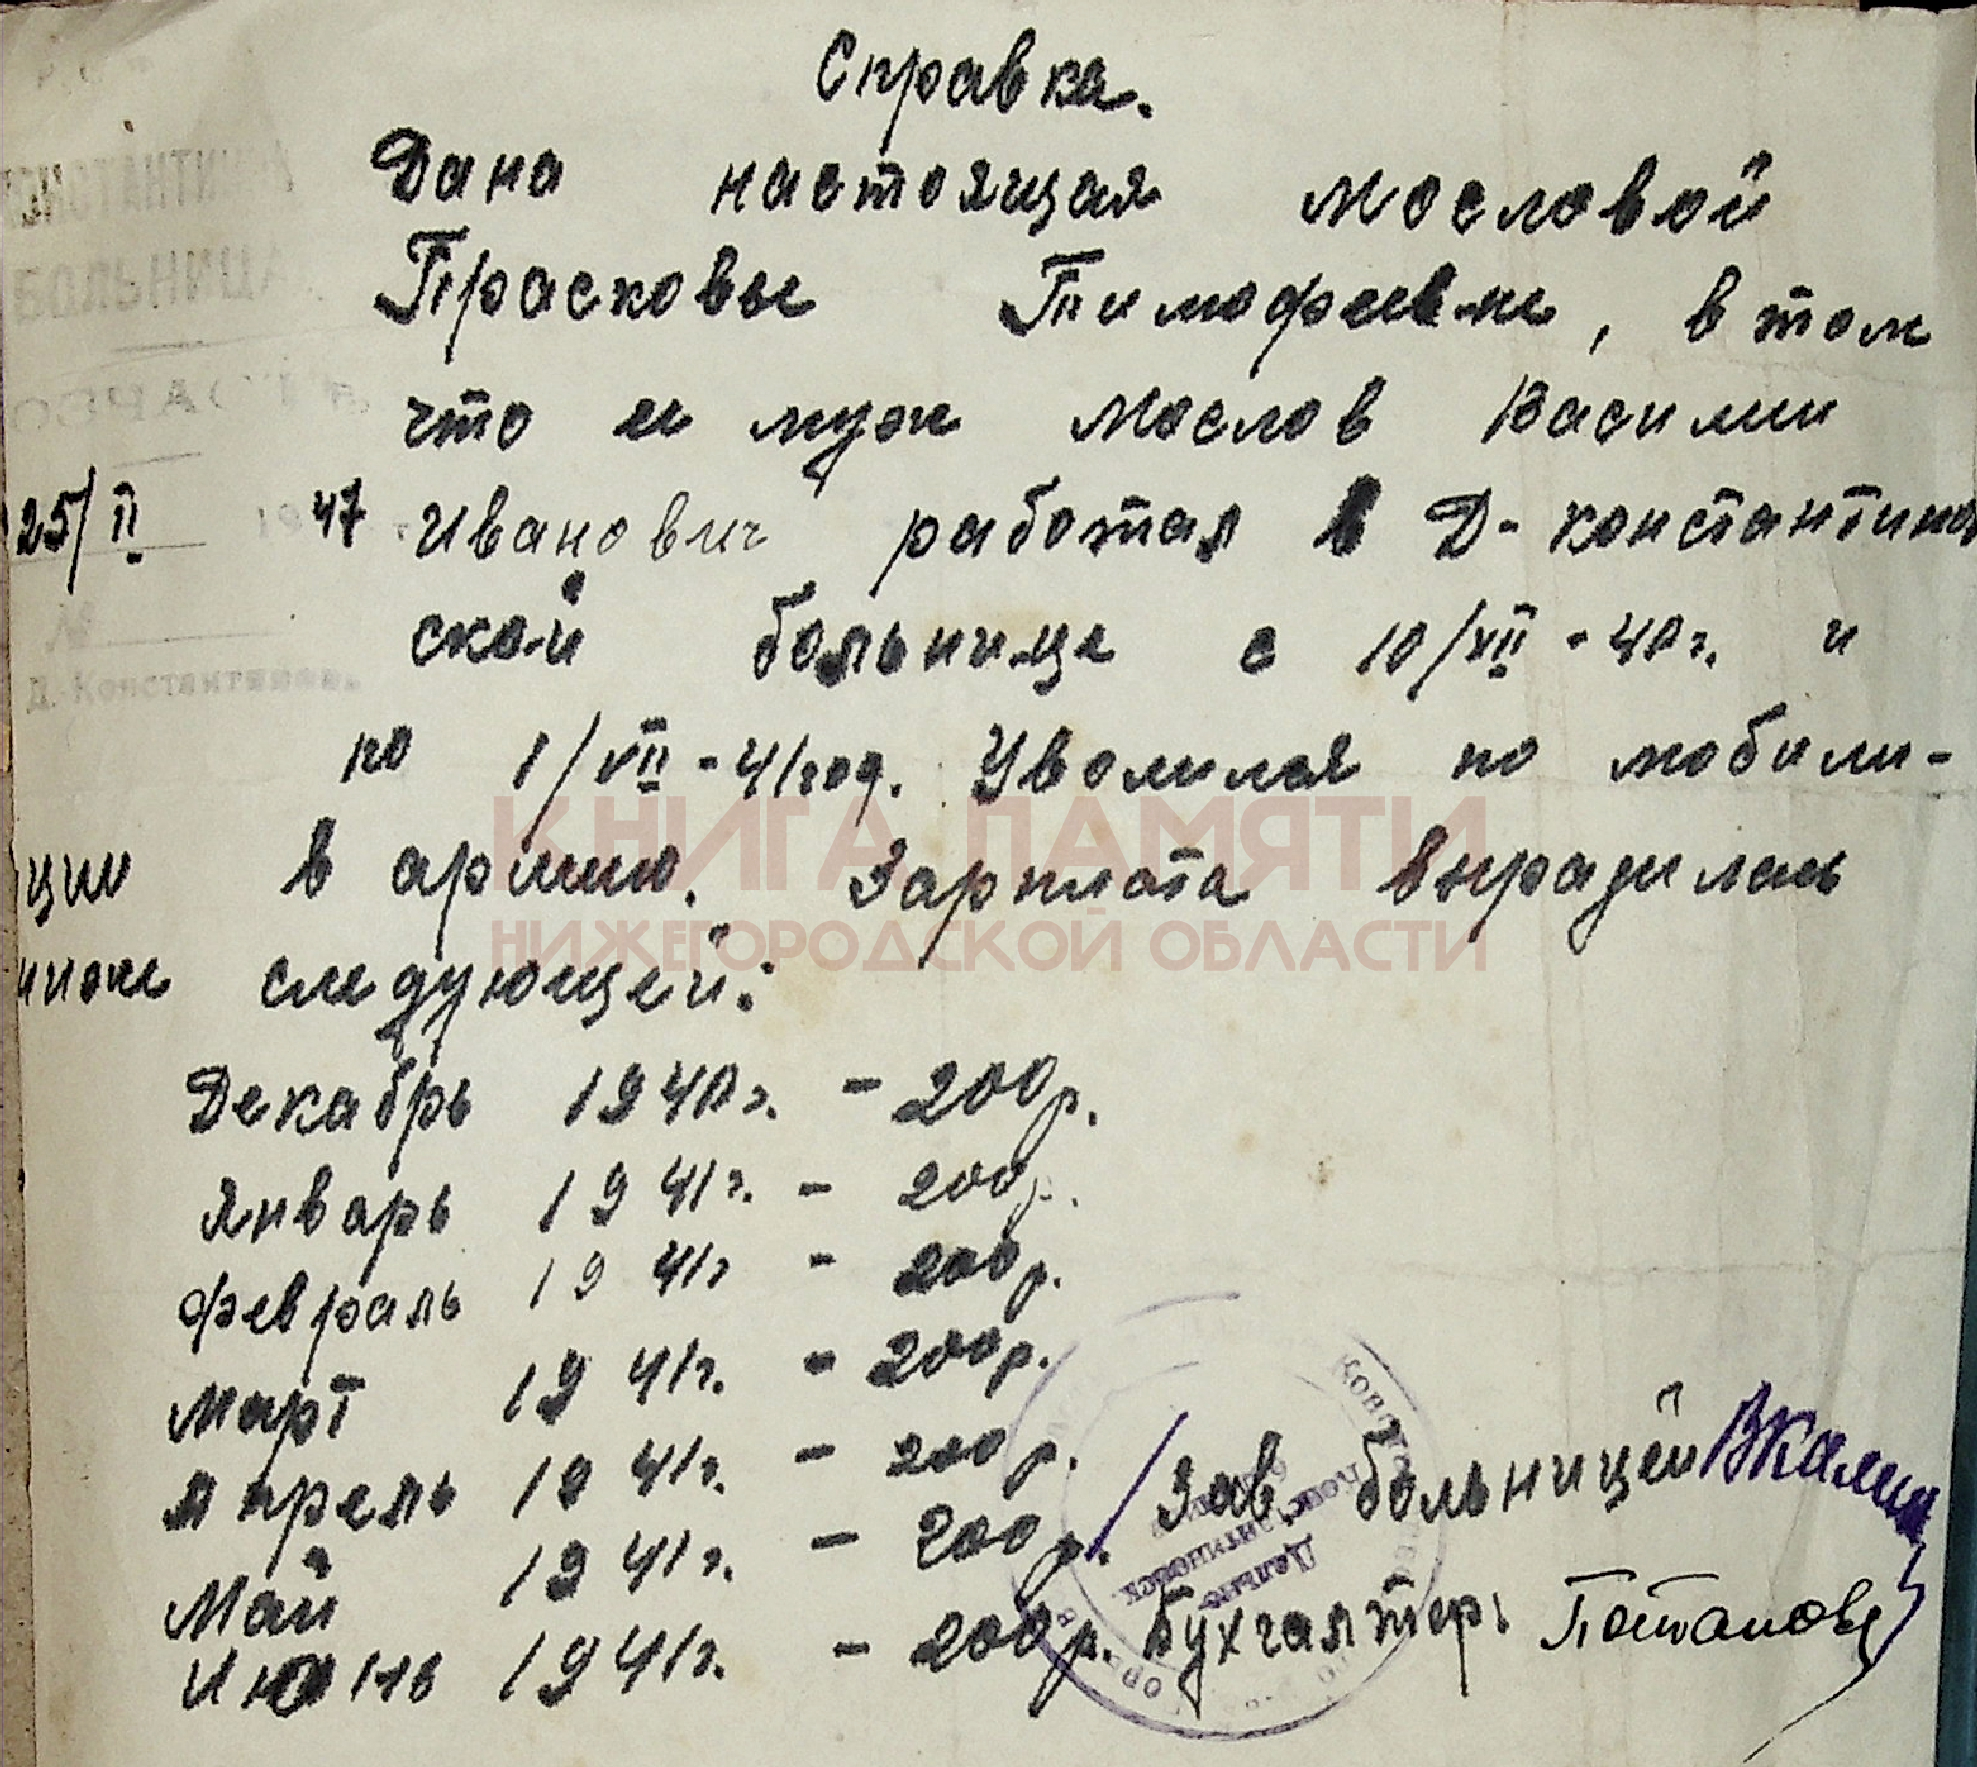 Справка.
Дана настоящая Масловой
Прасковье Тимофеевне, в том
что ее муж Маслов Василий
25/II 1947 г. Иванович работал в Д-константинов
ской больнице с 10/XII-40г. и
по 1/VII-41год. Уволился по мобили-
ции в армию. Зарплата выradилась
КНИГА ПАМЯТИ
НИЖЕГОРОДСКОЙ ОБЛАСТИ
ниже следующей:
Декабрь 1940г. - 200р.
Январь 1941г. - 200р.
Февраль 1941г - 200р.
Март 1941г. - 200р.
Апрель 1941г. - 200р.
Май 1941г. - 200р.
Июнь 1941г. - 200р.
/Зав больницей ВКалин
Бухгалтер: Потапова
КОНСТАНТИНОВ
БОЛЬНИЦА
№
Д.-Константиново.